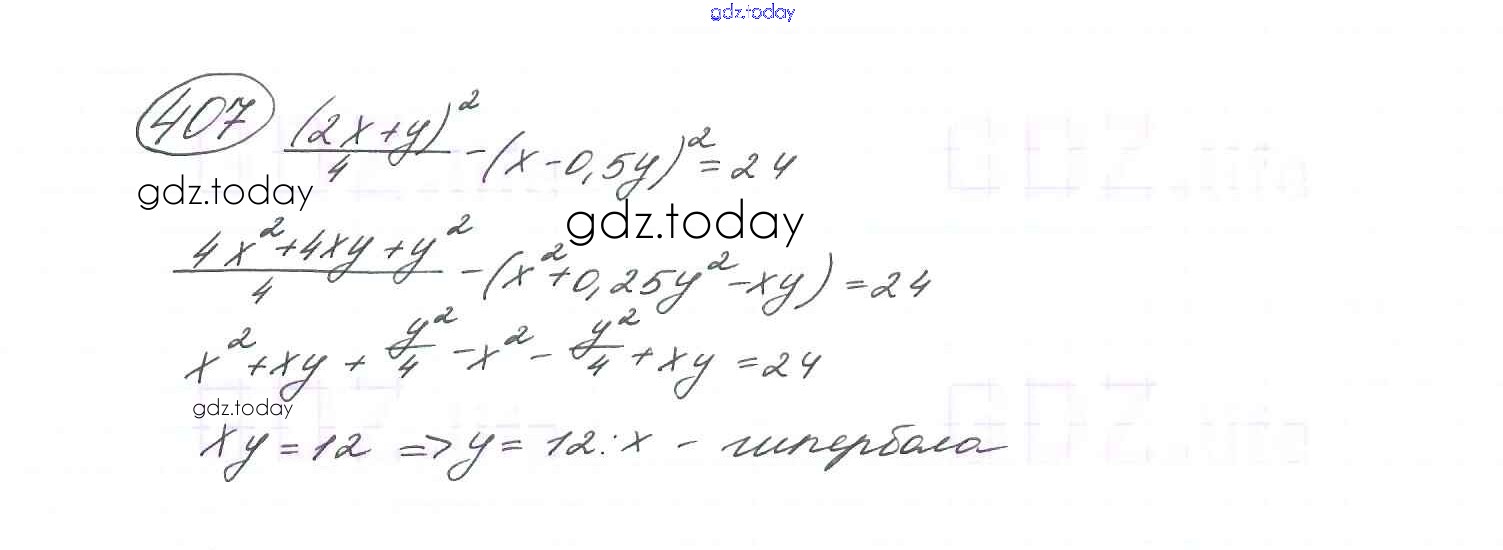 gdz.today
407 (2x+y)²/4 - (x-0,5y)² = 24
gdz.today
gdz.today
4x²+4xy+y²/4 - (x²+0,25y²-xy) = 24
x²+xy+y²/4-x²-y²/4+xy=24
gdz.today
xy=12 => y=12:x - гипербола